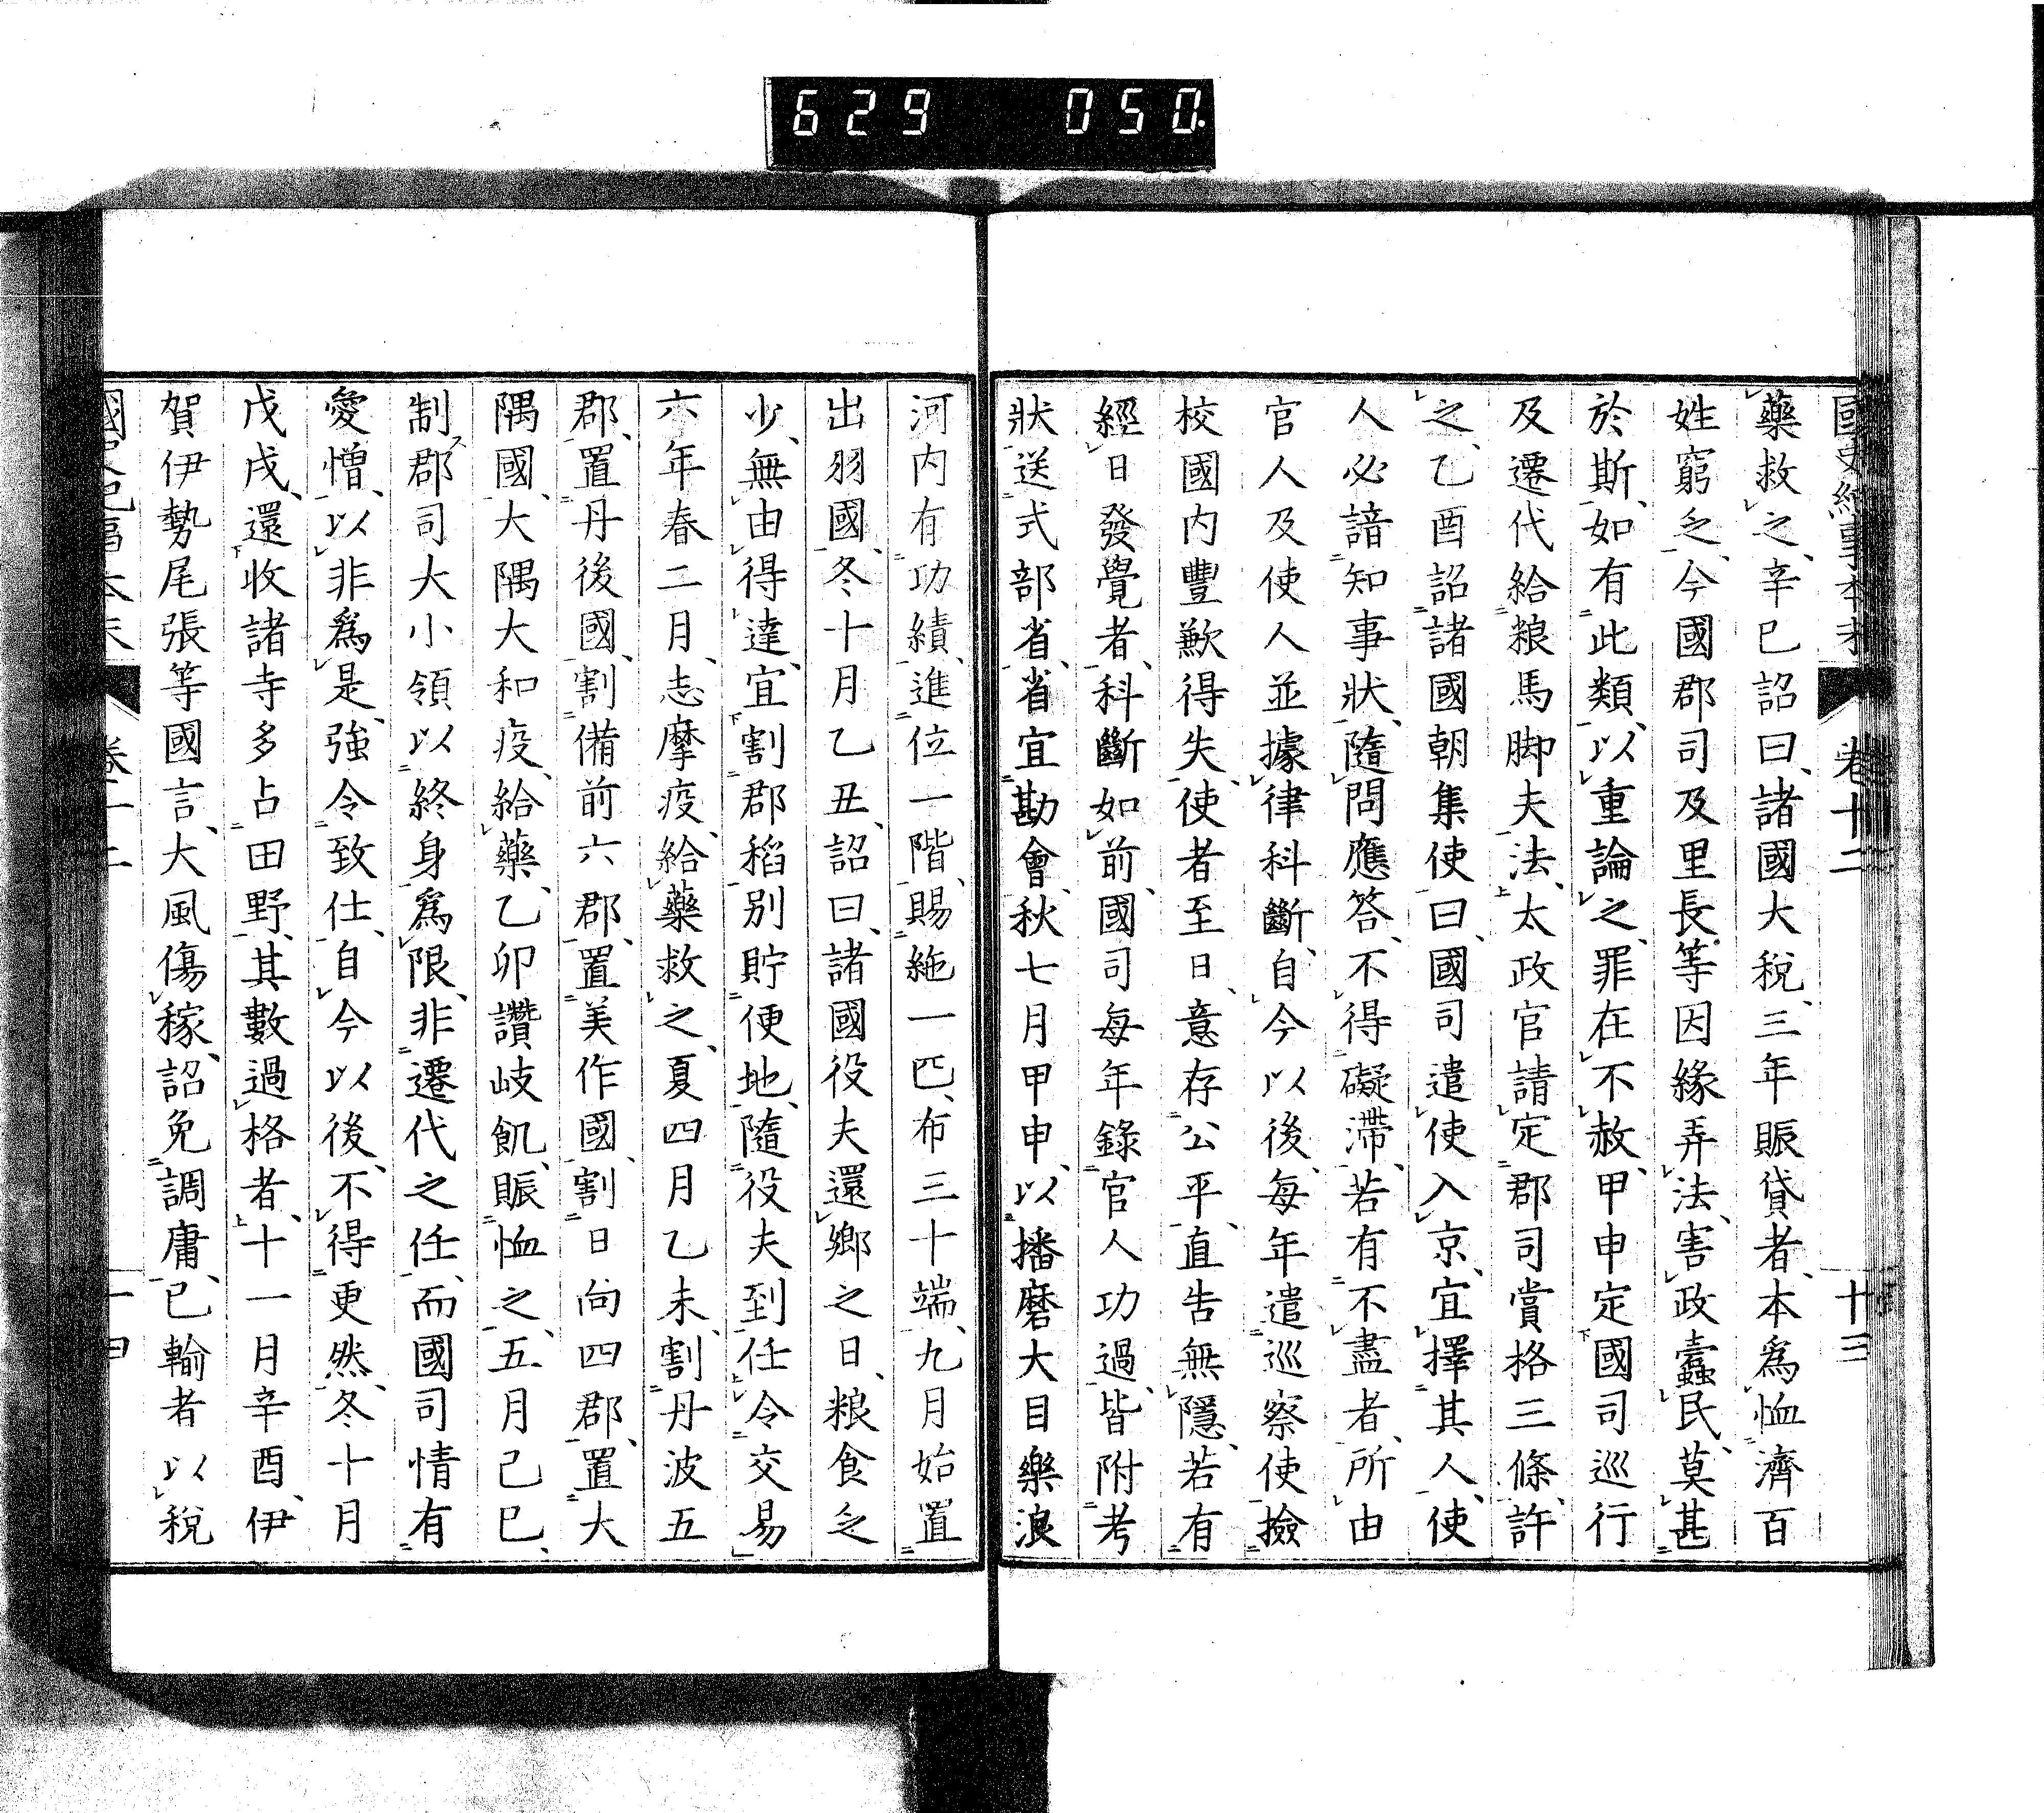 629 050.
國史紀事本末 卷十二 十三
藥救之、辛巳詔曰、諸國大稅、三年賑貸者、本爲恤濟百
姓窮乏、今國郡司及里長等、因緣弄法、害政蠹民、莫甚
於斯、如有此類、以重論之、罪在不赦、甲申定國司巡行
及遷代給粮馬脚夫法、太政官請定郡司賞格三條、許
之、乙酉詔諸國朝集使曰、國司遣使入京、宜擇其人、使
人必諳知事狀、隨問應答、不得礙滯、若有不盡者、所由
官人及使人並據律科斷、自今以後、每年遣巡察使、撿
校國內豐歉得失、使者至日、意存公平、直告無隱、若有
經日發覺者、科斷如前、國司每年錄官人功過、皆附考
狀送式部省、省宜勘會、秋七月甲申、以播磨大目樂浪
河內有功績、進位一階、賜絁一匹、布三十端、九月始置
出羽國、冬十月乙丑、詔曰、諸國役夫還鄉之日、粮食乏
少、無由得達、宜割郡稻別貯便地、隨役夫到任令交易
六年春二月、志摩疫、給藥救之、夏四月乙未、割丹波五
郡、置丹後國、割備前六郡、置美作國、割日向四郡、置大
隅國、大隅大和疫、給藥、乙卯讚岐飢、賑恤之、五月己巳、
制郡司大小領以終身爲限、非遷代之任、而國司情有
愛憎、以非爲是、強令致仕、自今以後、不得更然、冬十月
戊戌、還收諸寺多占田野、其數過格者、十一月辛酉、伊
賀伊勢尾張等國言、大風傷稼、詔免調庸、已輸者以稅